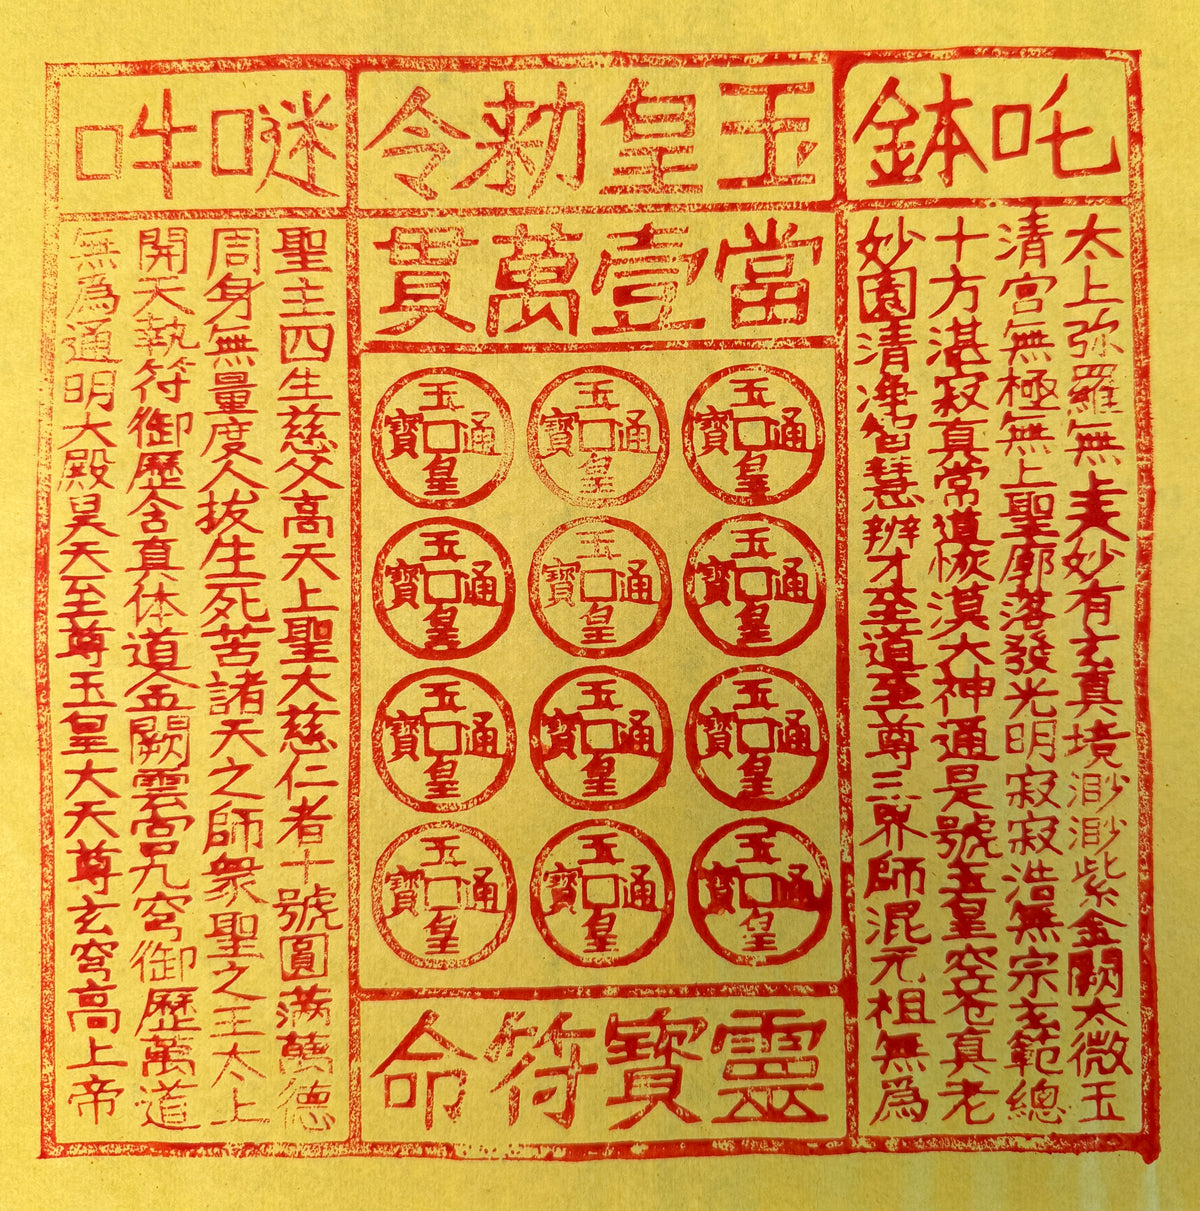 吒鉢
太上弥羅無上天妙有玄真境渺渺紫金闕太微玉
清宮無極無上聖廓落發光明寂寂浩無宗玄範總
十方湛寂真常道恢漠大神通是號玉皇空苍真老
妙圓清净智慧辨才至道至尊三界師混元祖無為
玉皇勅令
當壹萬貫
玉皇通寶
玉皇通寶
玉皇通寶
玉皇通寶
玉皇通寶
玉皇通寶
玉皇通寶
玉皇通寶
玉皇通寶
玉皇通寶
玉皇通寶
玉皇通寶
靈寶符命
吽
聖主四生慈父高天上聖大慈仁者十號圓滿萬德
周身無量度人拔生死苦諸天之師衆聖之王太上
開天執符御歷含真体道金闕雲宮九穹御歷萬道
無為通明大殿昊天至尊玉皇大天尊玄穹高上帝